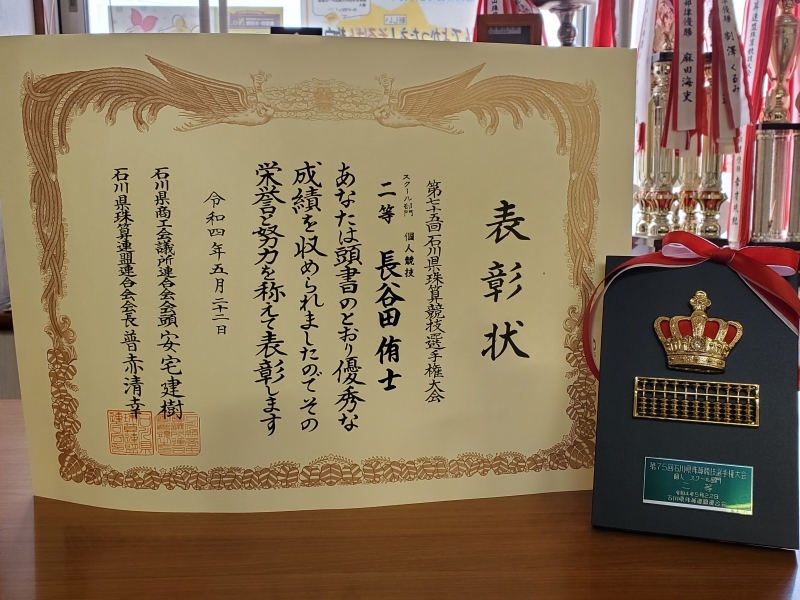 表彰状
第七十五回石川県珠算競技選手権大会
スクール部門 個人競技
二等 長谷田侑士
あなたは頭書のとおり優秀な
成績を収められましたのでその
栄誉と努力を称えて表彰します
令和四年五月二十二日
石川県商工会議所連合会会頭 安宅建樹
石川県珠算連盟連合会会長 普赤清幸
第75回石川県珠算競技選手権大会
個人 スクール部門
二等
令和4年5月22日
石川県珠算連盟連合会
麻田海吏
割澤くるみ